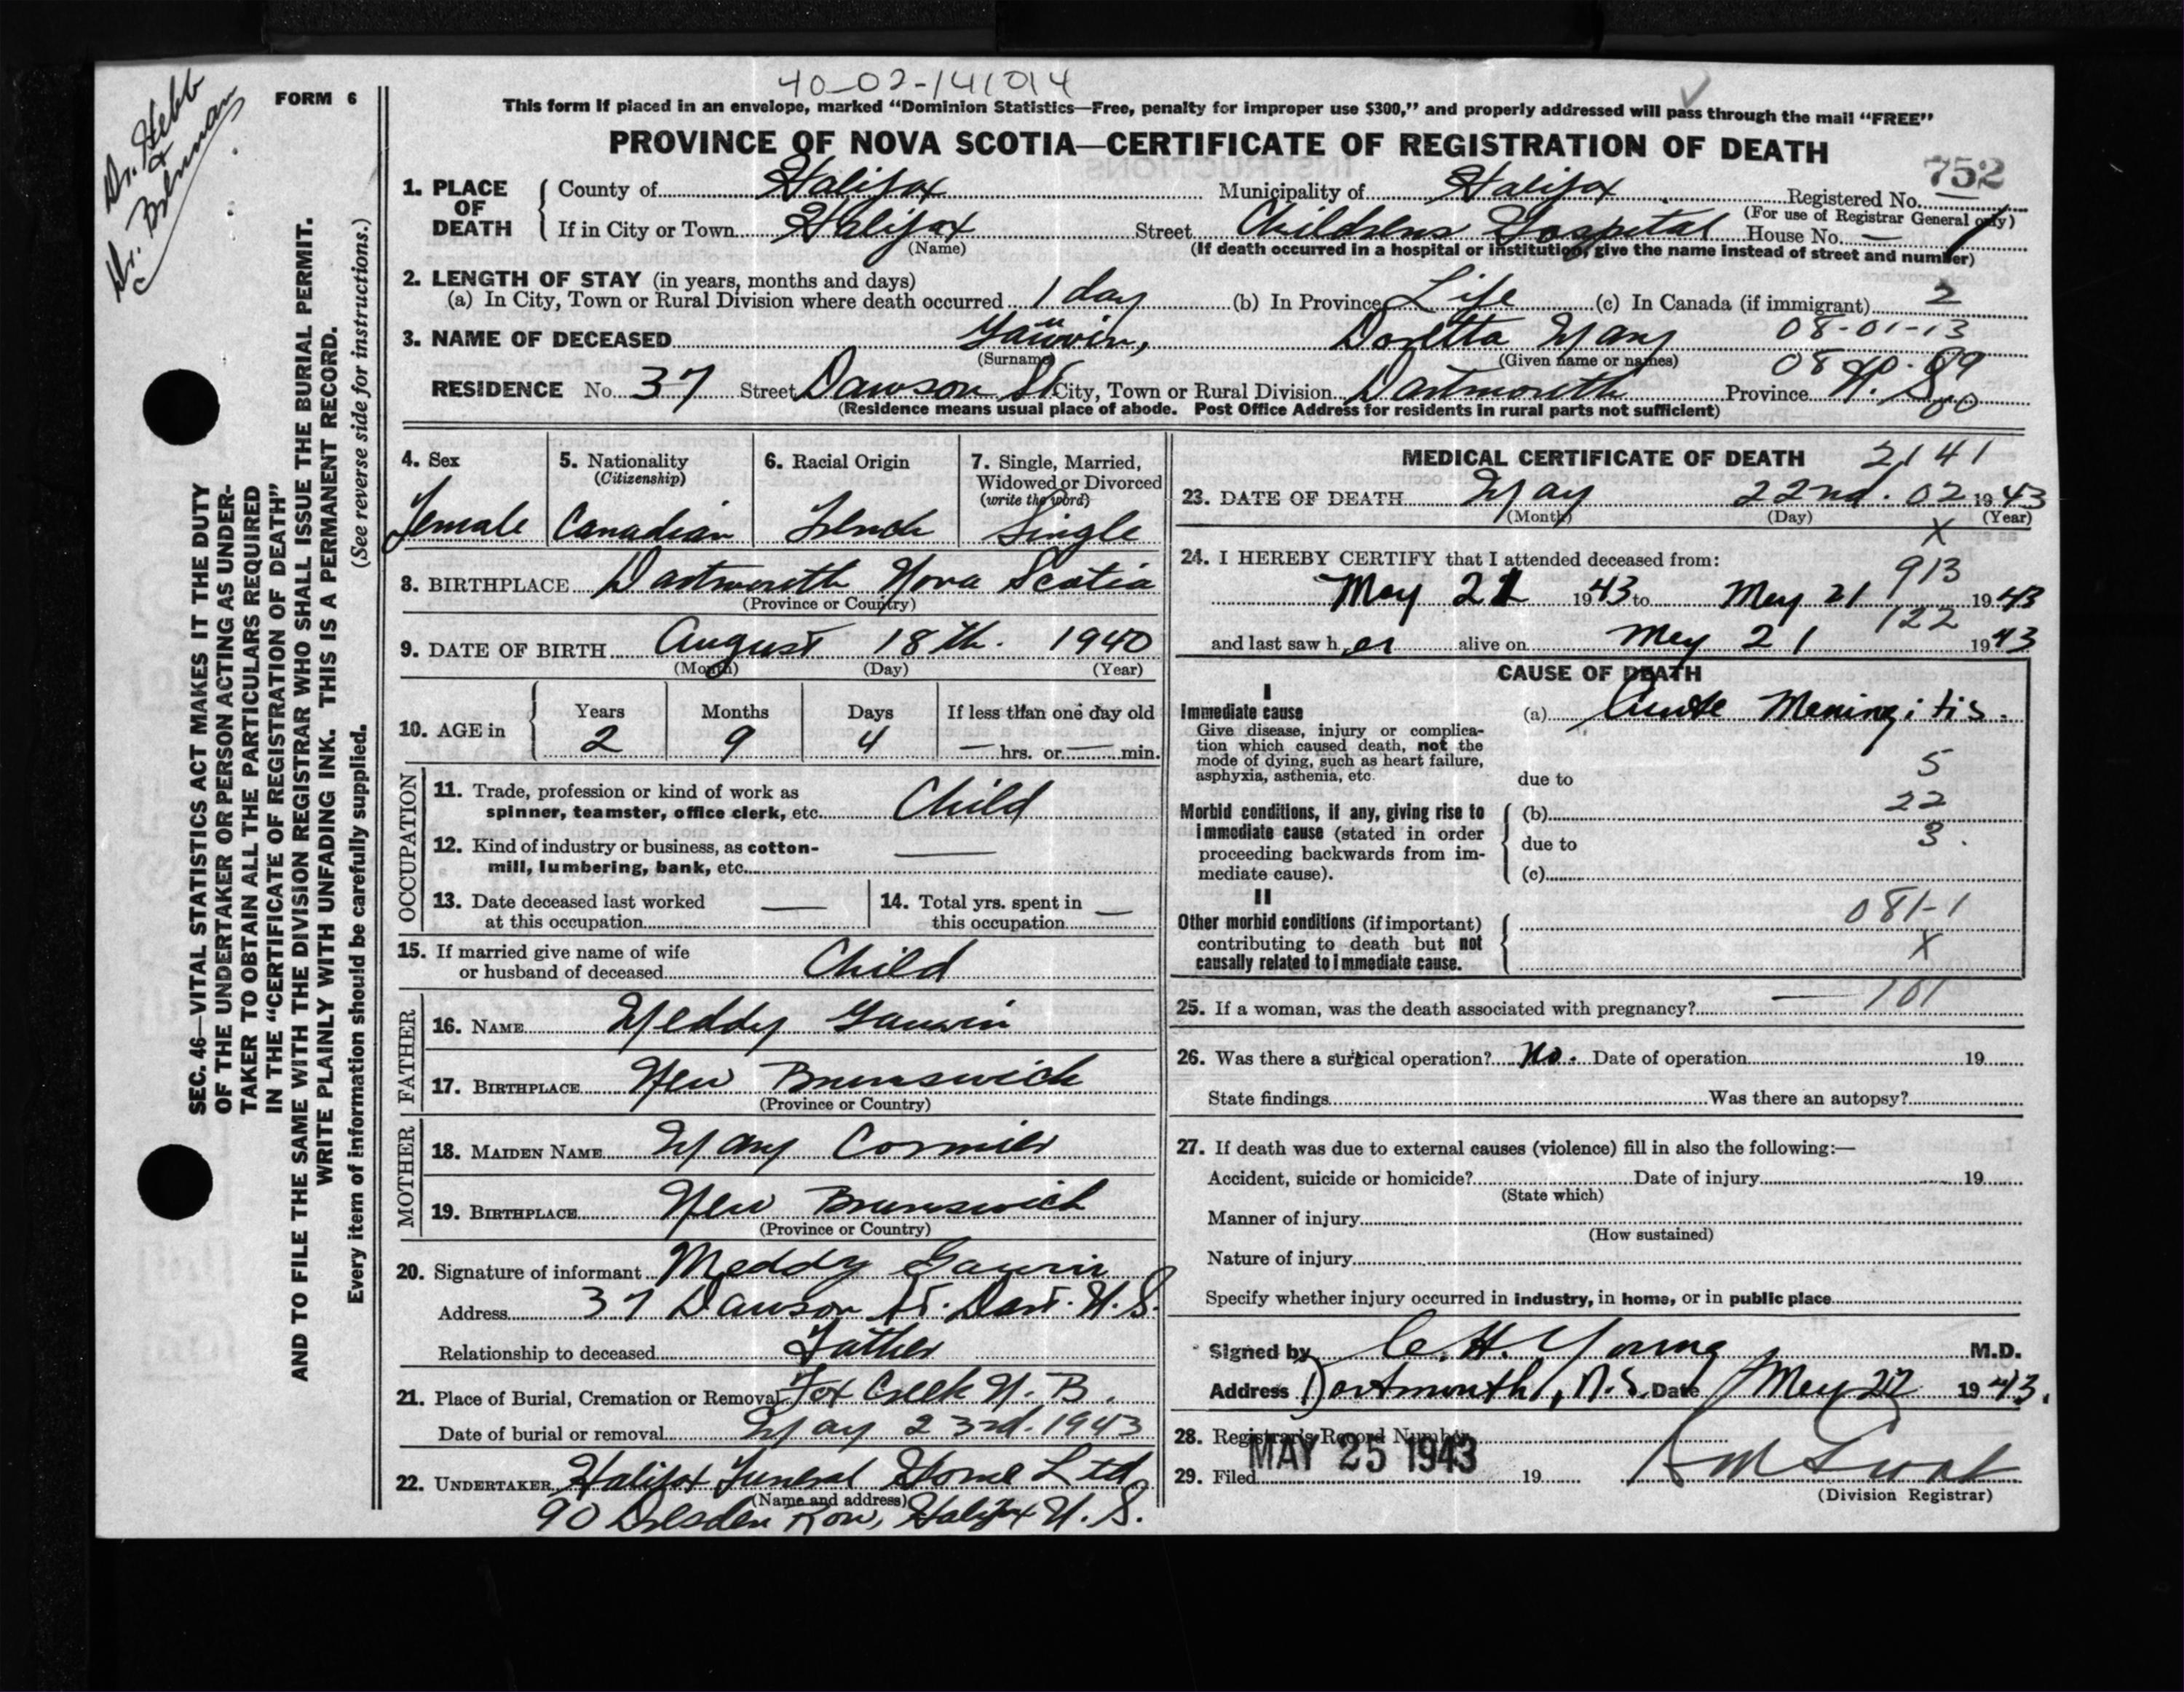 40-02-141014
FORM 6
Dr. Hebb
&
Dr.
This form if placed in an envelope, marked “Dominion Statistics—Free, penalty for improper use $300,” and properly addressed will pass through the mail “FREE”
PROVINCE OF NOVA SCOTIA—CERTIFICATE OF REGISTRATION OF DEATH
752
1. PLACE OF DEATH
County of Halifax Municipality of Halifax Registered No.
(For use of Registrar General only)
If in City or Town Halifax Street Childrens Hospital House No. —
(Name) (If death occurred in a hospital or institution, give the name instead of street and number)
2. LENGTH OF STAY (in years, months and days)
(a) In City, Town or Rural Division where death occurred 1 day (b) In Province Life (c) In Canada (if immigrant) 2
08-01-13
3. NAME OF DECEASED Gauvin, Doretta Mary
(Surname) (Given name or names)
08 10-09
RESIDENCE No. 37 Street Dawson St City, Town or Rural Division Dartmouth Province N. S.
00
(Residence means usual place of abode. Post Office Address for residents in rural parts not sufficient)
4. Sex 5. Nationality (Citizenship) 6. Racial Origin 7. Single, Married, Widowed or Divorced (write the word)
Female Canadian French Single
8. BIRTHPLACE Dartmouth Nova Scotia
(Province or Country)
9. DATE OF BIRTH August 18th. 1940
(Month) (Day) (Year)
10. AGE in Years Months Days If less than one day old
2 9 4 — hrs. or — min.
OCCUPATION
11. Trade, profession or kind of work as
spinner, teamster, office clerk, etc. Child
12. Kind of industry or business, as cotton-
mill, lumbering, bank, etc. —
13. Date deceased last worked
at this occupation —
14. Total yrs. spent in
this occupation —
15. If married give name of wife
or husband of deceased Child
FATHER
16. NAME Meddy Gauvin
17. BIRTHPLACE New Brunswick
(Province or Country)
MOTHER
18. MAIDEN NAME Mary Cormier
19. BIRTHPLACE New Brunswick
(Province or Country)
20. Signature of informant Meddy Gauvin
Address 37 Dawson St. Dart. N. S.
Relationship to deceased Father
21. Place of Burial, Cremation or Removal Fox Creek N. B.
Date of burial or removal May 23rd. 1943
22. UNDERTAKER Halifax Funeral Home Ltd
(Name and address)
90 Dresden Row, Halifax N. S.
MEDICAL CERTIFICATE OF DEATH 2141
23. DATE OF DEATH May 22nd. 02 1943
(Month) (Day) (Year)
X
24. I HEREBY CERTIFY that I attended deceased from:
913
May 21 1943 to May 21 1943
122
and last saw her alive on May 21 1943
CAUSE OF DEATH
I
Immediate cause (a) Acute Meningitis.
Give disease, injury or complica-
tion which caused death, not the
mode of dying, such as heart failure,
asphyxia, asthenia, etc.
due to 5
Morbid conditions, if any, giving rise to (b) 22
immediate cause (stated in order due to 3.
proceeding backwards from im-
mediate cause). (c)
II
081-1
Other morbid conditions (if important)
contributing to death but not X
causally related to immediate cause.
25. If a woman, was the death associated with pregnancy? — 101
26. Was there a surgical operation? No. Date of operation 19
State findings Was there an autopsy?
27. If death was due to external causes (violence) fill in also the following:—
Accident, suicide or homicide? Date of injury 19
(State which)
Manner of injury
(How sustained)
Nature of injury
Specify whether injury occurred in industry, in home, or in public place
Signed by C. H. Young M.D.
Address Dartmouth, N.S. Date May 22 1943.
28. Registrar's Record Number
29. Filed MAY 25 1943 19
(Division Registrar)
SEC. 46—VITAL STATISTICS ACT MAKES IT THE DUTY
OF THE UNDERTAKER OR PERSON ACTING AS UNDER-
TAKER TO OBTAIN ALL THE PARTICULARS REQUIRED
IN THE “CERTIFICATE OF REGISTRATION OF DEATH”
AND TO FILE THE SAME WITH THE DIVISION REGISTRAR WHO SHALL ISSUE THE BURIAL PERMIT.
WRITE PLAINLY WITH UNFADING INK. THIS IS A PERMANENT RECORD.
Every item of information should be carefully supplied. (See reverse side for instructions.)